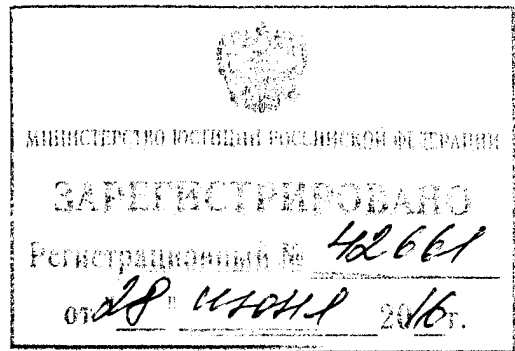 МИНИСТЕРСТВО ЮСТИЦИИ РОССИЙСКОЙ ФЕДЕРАЦИИ
ЗАРЕГИСТРИРОВАНО
Регистрационный № 42661
от 28 " июня 2016 г.